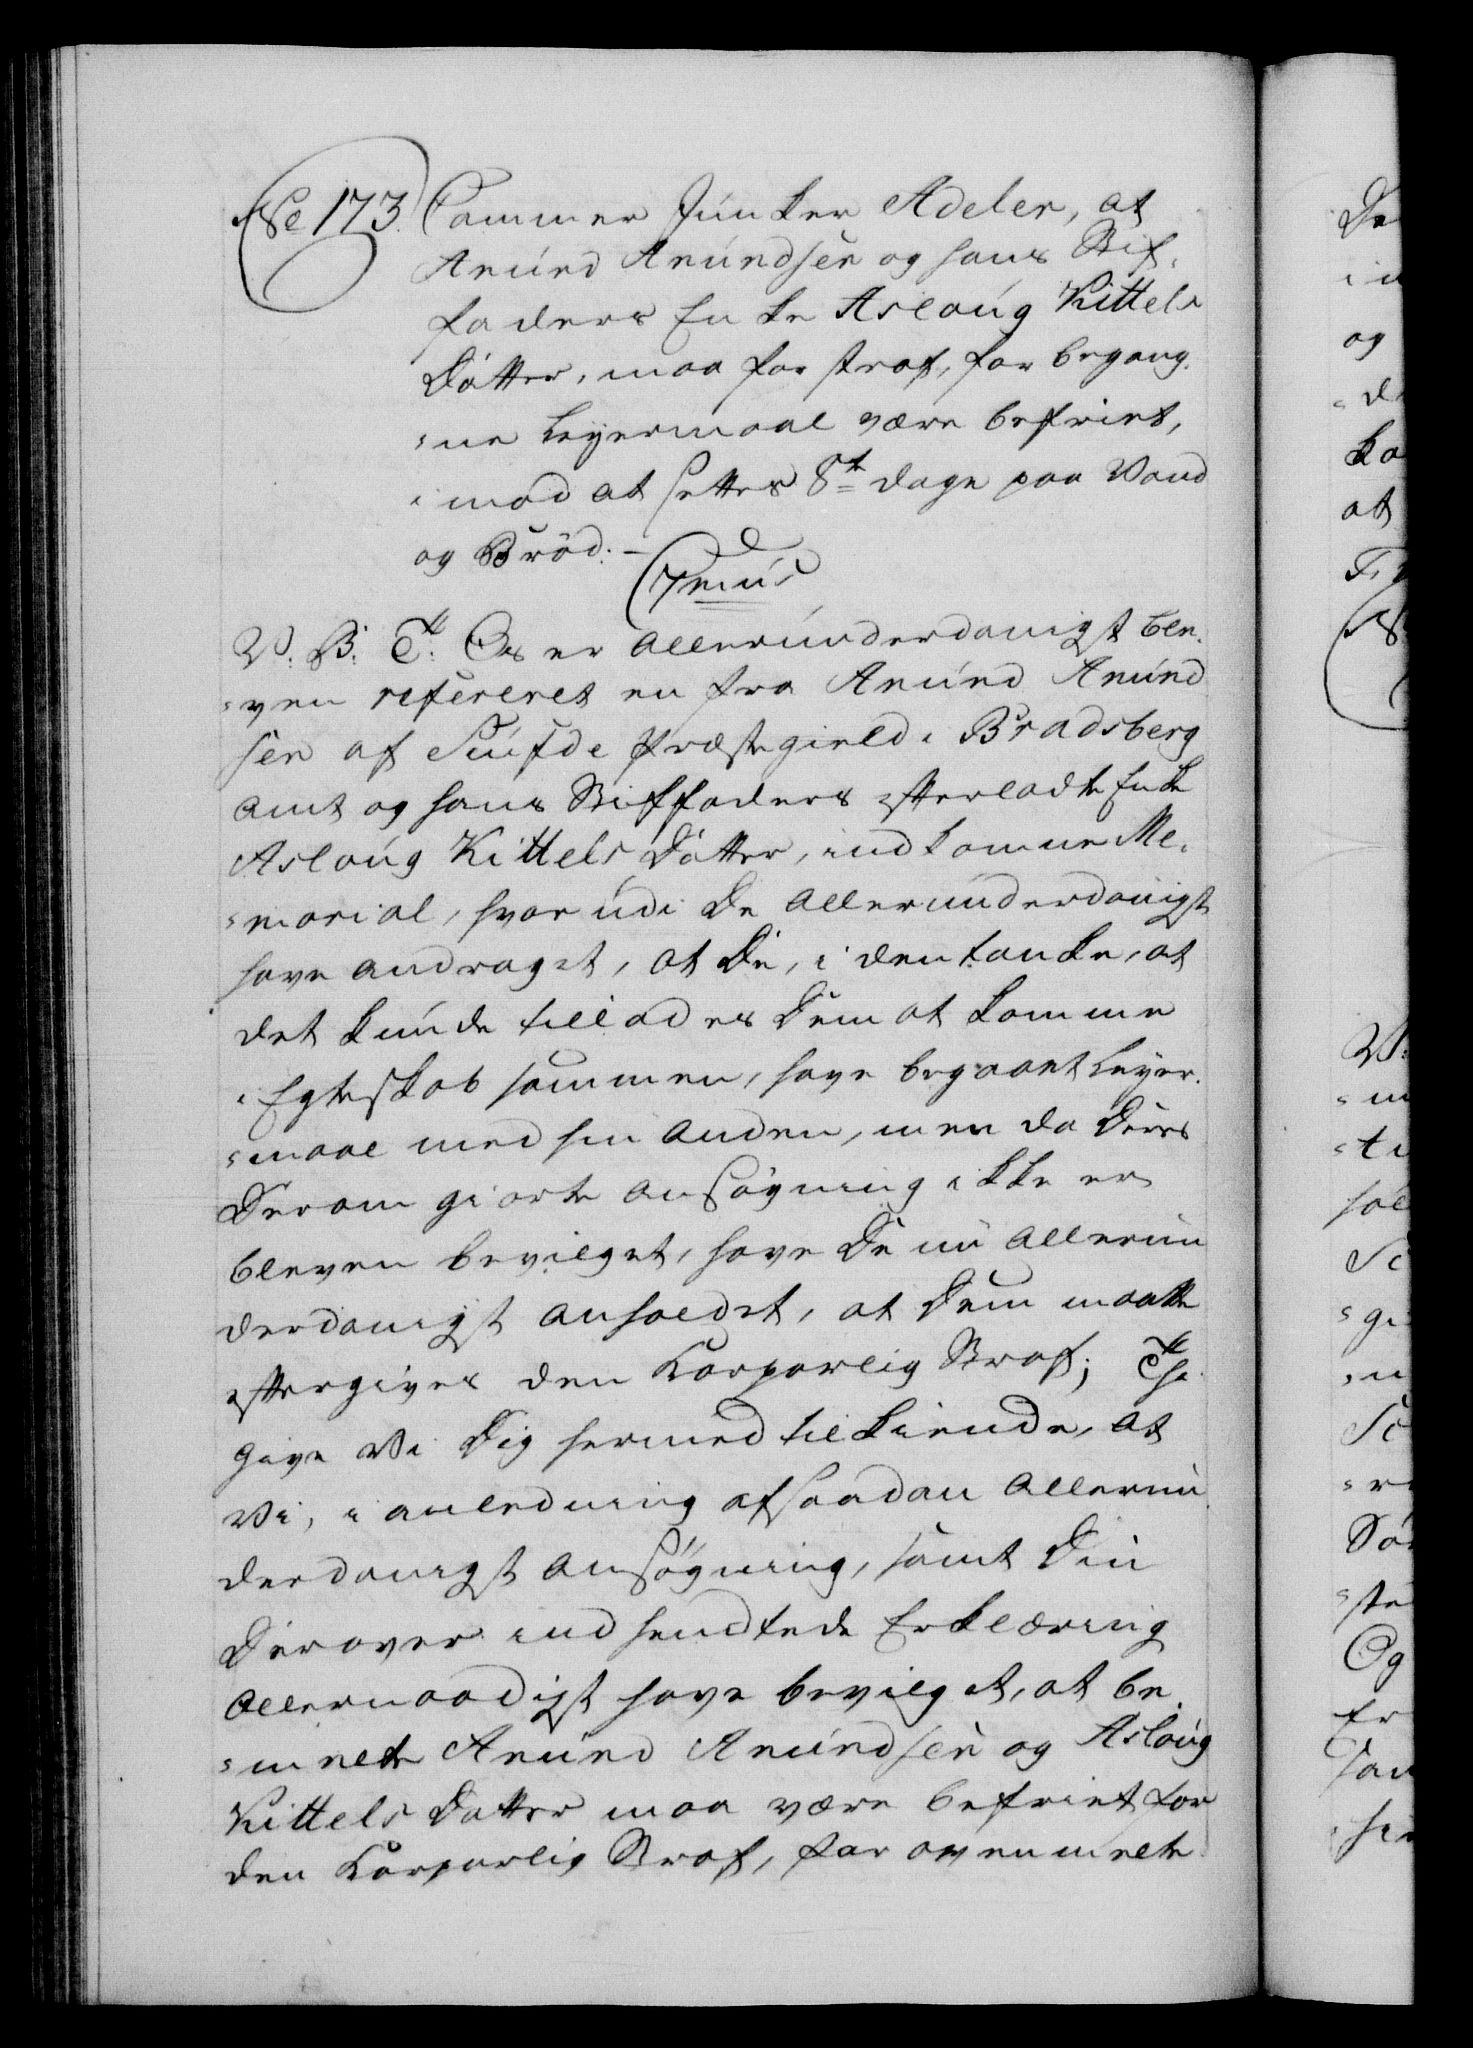 No 173. Cammer Junker Adeler, at
Anund Anundsen og hans Stif-
faders Enke Aslaug Kittels
Datter, maa for straf, for begang-
-ne Leyermaal være befriet,
imod at settes 8te dage paa Vand
og Brød. —
V. B. T. Os er allerunderdanigst ble-
-ven refereret en fra Anund Anund
sen af Seufde Præstegield i Bradsberg
amt og hans Stiffaders efterladte Enke
Aslaug Kittels Datter, indkomne Me-
-morial, hvorudi De allerunderdanigst
have andraget, at De, i den tanke, at
det kunde tillades Dem at komme
i Egteskab sammen, have begaaet Leyer-
-maal med hin anden, men da Deres
Derom giorte ansøgning ikke er
bleven bevilget, have De nu allerun
derdanigst anholdet, at Dem maatte
eftergives den Korporlig Straf; Thi
give Vi Dig hermed tilkiende, at
Vi, i anledning af saadan allerun
derdanigst ansøgning, samt Din
Derover indsendtede Erklæring
allernaadigst have bevilget, at be-
-meldte Anund Anundsen og Aslaug
Kittels Datter maa være befriet for
den Korporlig Straf, for ovenmelte